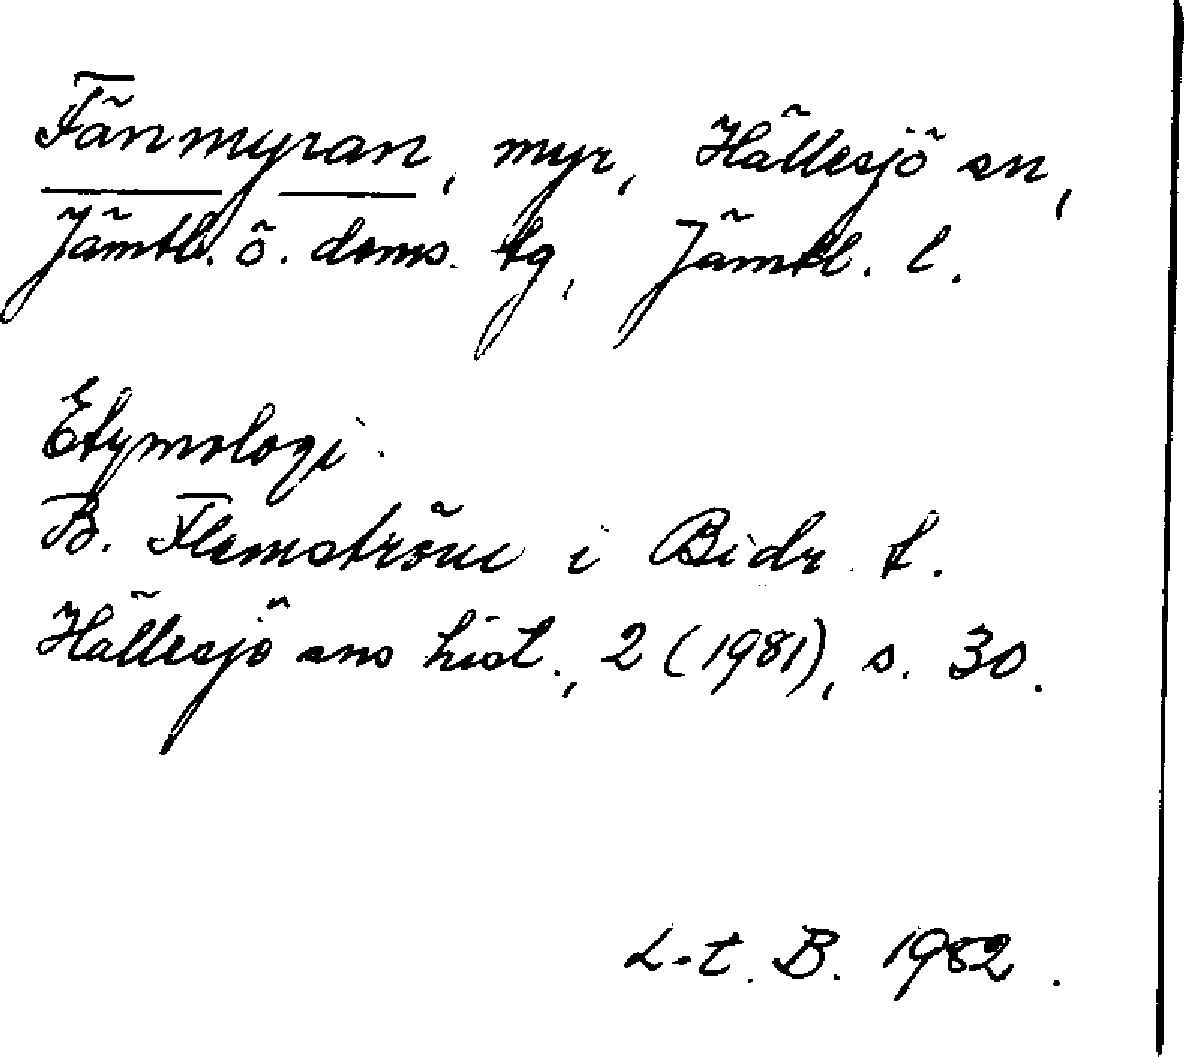 Fänmyran, myr, Hällesjö sn,
Jämtl. ö. doms. tg, Jämtl. l.
Etymologi.
B. Flemström i Bidr. t.
Hällesjö sns hist., 2 (1981), s. 30.
L-t. B. 1982.